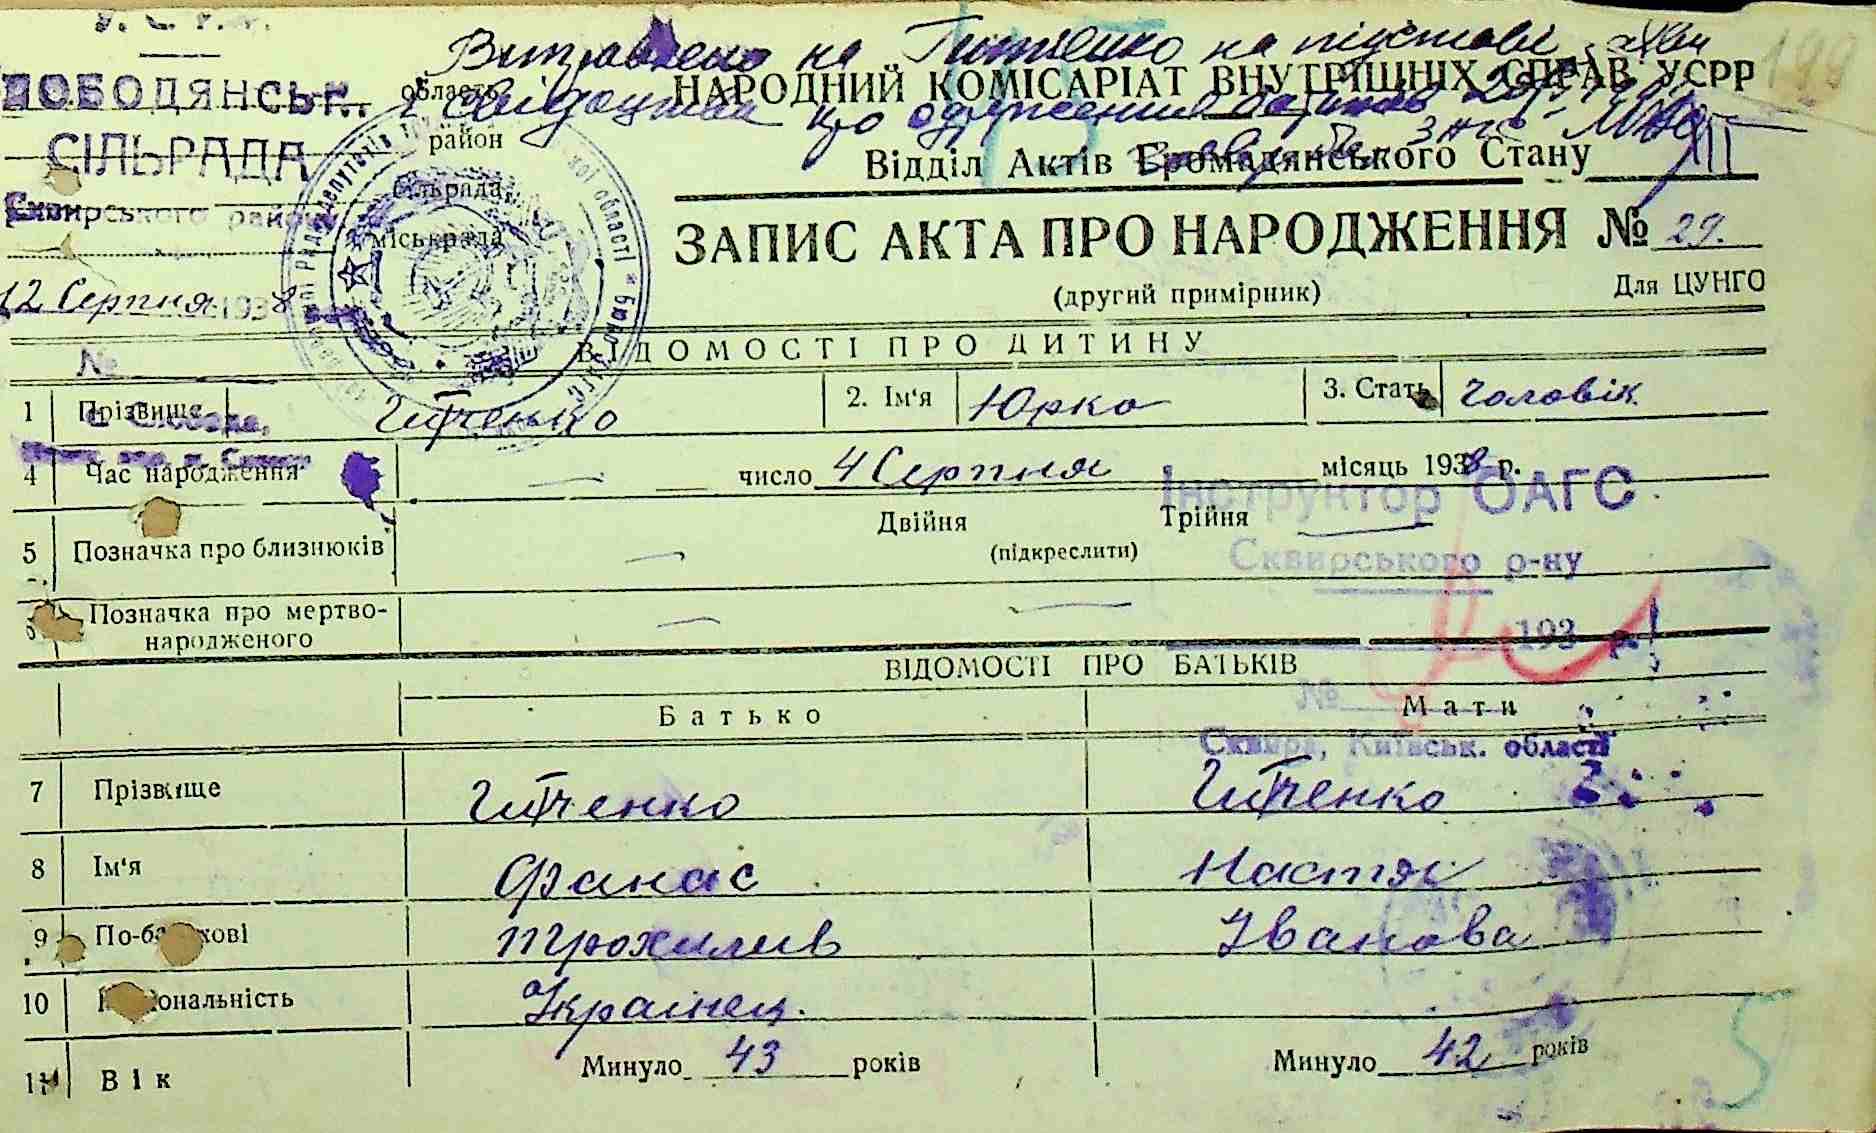 У. С. Р. Р.
Виправлено на на підставі
СЛОБОДЯНСЬК. область НАРОДНИЙ КОМІСАРІАТ ВНУТРІШНІХ СПРАВ УСРР 199
свідоцтва про одруження батьків
СІЛЬРАДА район
Відділ Актів Громадянського Стану
Сквирського району сільрада
міськрада
ЗАПИС АКТА ПРО НАРОДЖЕННЯ № 29.
12 Серпня 1938 (другий примірник) Для ЦУНГО
№ ВІДОМОСТІ ПРО ДИТИНУ
1 Прізвище Гитченко 2. Ім'я Юрко 3. Стать Чоловік
с. Слобода,
4 Час народження — число 4 Серпня місяць 1938 р.
Інструктор ОАГС
5 Позначка про близнюків — Двійня Трійня —
(підкреслити)
Сквирського р-ну
6 Позначка про мертво-
народженого — —
193 р.
ВІДОМОСТІ ПРО БАТЬКІВ
№
Батько Мати
Сквира, Київськ. області
7 Прізвище Гитченко Гитченко
8 Ім'я Фанас Настя
9 По-батькові Трохимів Іванова
10 Національність Українец.
11 Вік Минуло 43 років Минуло 42 років
5